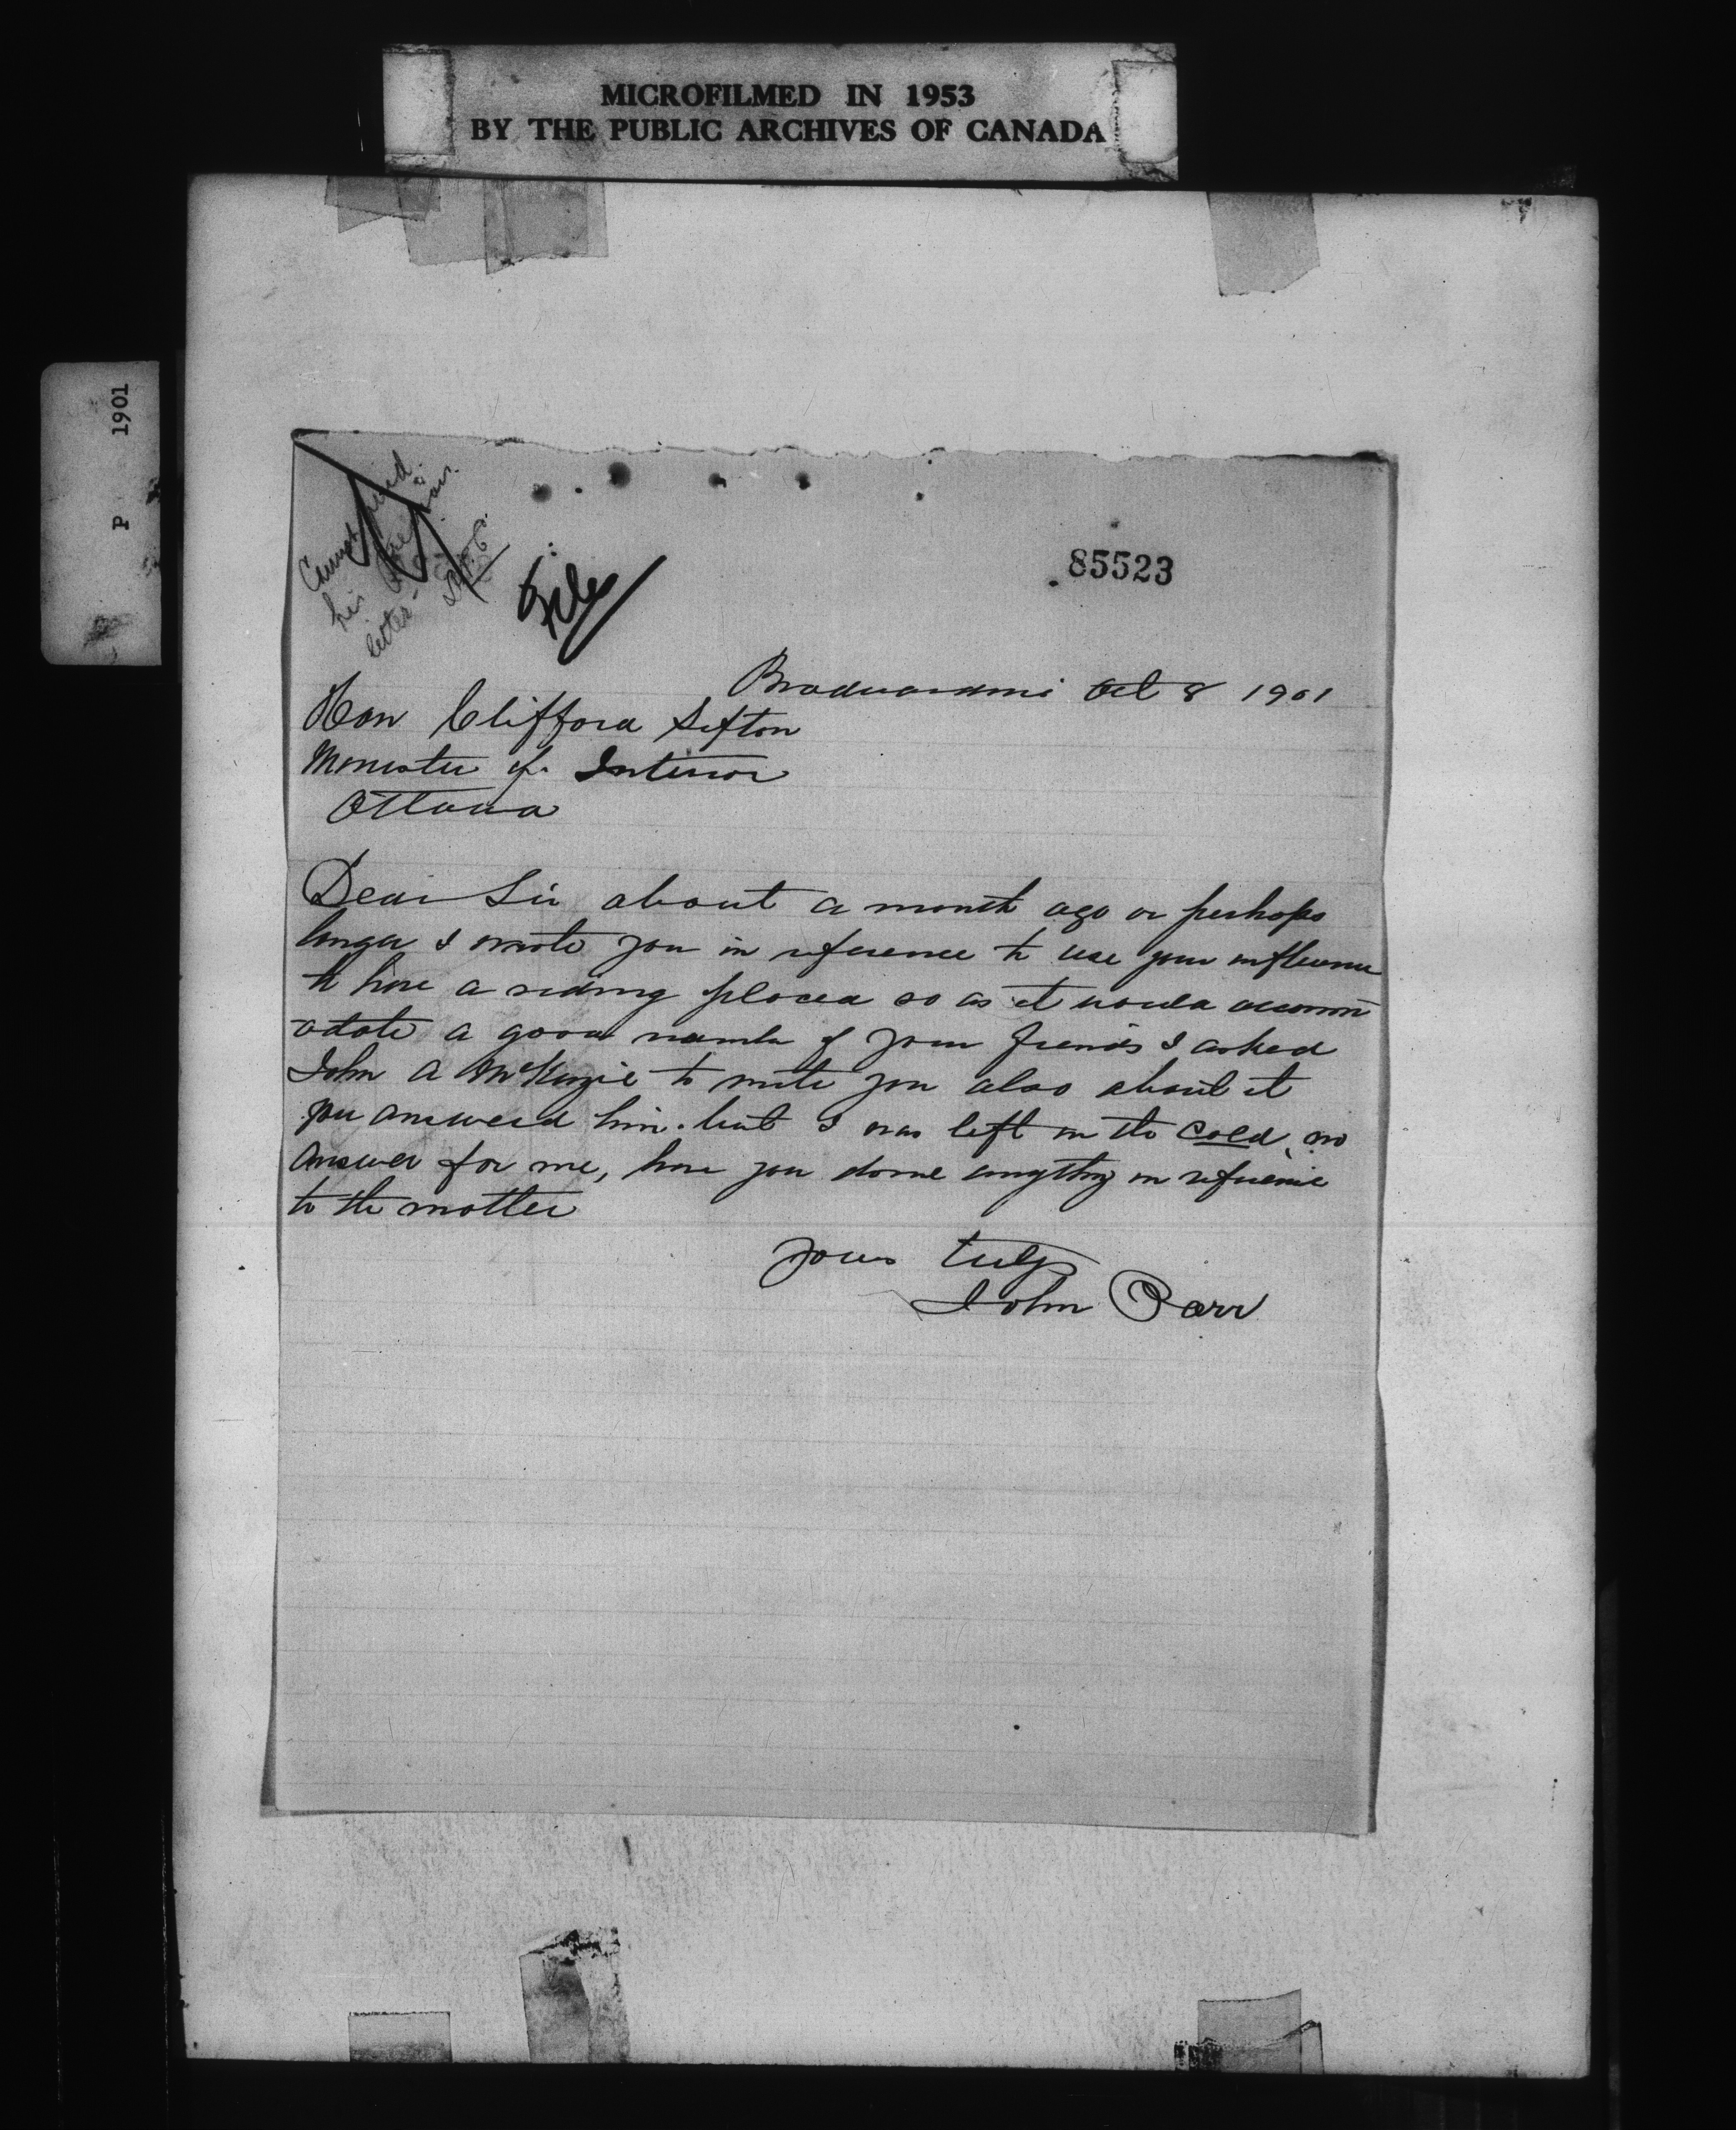 MICROFILMED IN 1953
BY THE PUBLIC ARCHIVES OF CANADA
P 1901
Cannot find
his previous
letter
File
85523
Bradwardine Oct 8 1901
Hon Clifford Sifton
Minister of Interior
Ottawa
Dear Sir about a month ago or perhaps
longer I wrote you in reference to use your influence
to have a siding placed so as it would accomm
odate a good number of your friends I asked
John A McKenzie to write you also about it
you answerd him. but I was left in the cold, no
answer for me, have you done anything in reference
to the matter
yours truly
John Parr